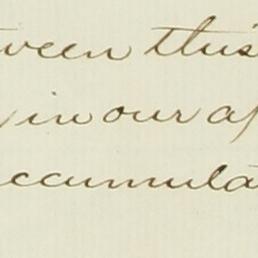 ween this
in our a
ccumula